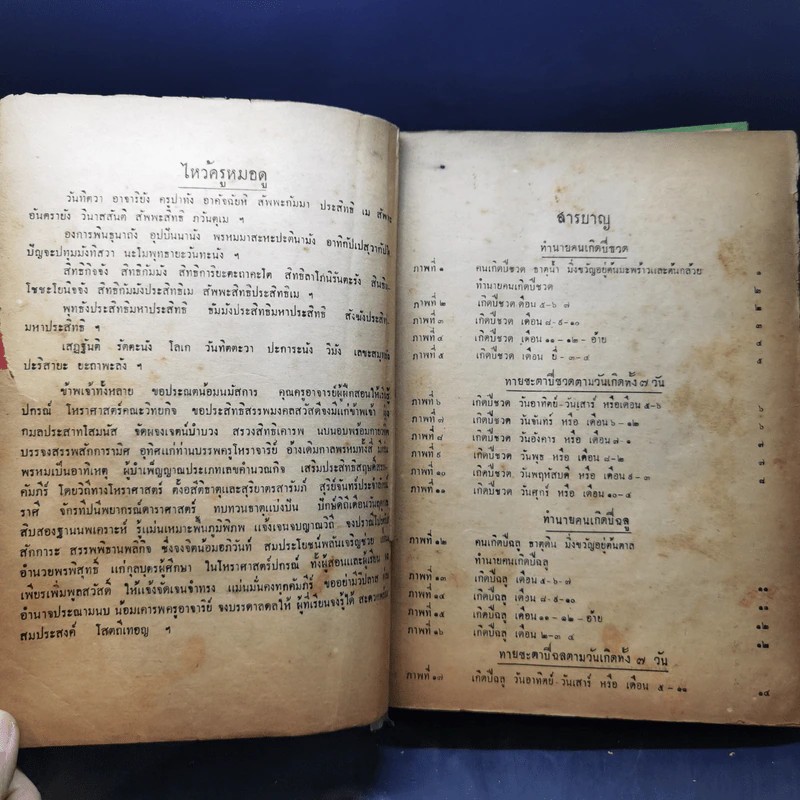 ไหว้ครูหมอดู
วันทิตวา อาจาริยัง ครุปาทัง อาคัจฉัยหิ สัพพะกัมมา ประสิทธิ เม สัพพะ
อันตรายัง วินาสสันติ สัพพะสิทธิ ภวันตุเม ฯ
องการพินธุนาถัง อุปปันนานัง พรหมมาสะหะปะตินามัง อาทิกัปเปสุวาคัปโป
ปัญจะปทุมมังทิสวา นะโมพุทธายะวันทะนัง ฯ
สิทธิกิจจัง สิทธิกัมมัง สิทธิการิยะคะถาคะโต สิทธิลาโภนิรันตะรัง สิทธิเต
โชชะโยนิจจัง สิทธิกัมมังประสิทธิเม สัพพะสิทธิประสิทธิเม ฯ
พุทธังประสิทธิมหาประสิทธิ ธัมมังประสิทธิมหาประสิทธิ สังฆังประสิทธิ
มหาประสิทธิ ฯ
เสฏฐันติ รัตตะนัง โลเก วันทิตตะวา ปะการะนัง วิมัง เลขะสมุทธัง
ปะริสายะ ยะถาพะลัง ฯ
ข้าพเจ้าทั้งหลาย ขอประณตน้อมนมัสการ คุณครูอาจารย์ผู้ฝึกสอนให้
ปกรณ์ โหราศาสตร์คณะวิทยกิจ ขอประสิทธิสรรพมงคลสวัสดีจงมีแก่ข้าพเจ้า
กมลประสาทโสมนัส จัดผจงเจตน์บำบวง สรวงสิทธิเคารพ นบนอบพร้อมกาย
บรรจงสรรพสักการามิศ อุทิศแก่ท่านบรมครูโหราจารย์ อ้างเดิมกาลพรหมทั้งสี่
พรหมเป็นอาทิเหตุ ผู้บำเพ็ญญาณประเภทเลขคำนวณกิจ เสริมประสิทธิสฤษดิ์
คัมภีร์ โดยวิถีทางโหราศาสตร์ ตั้งอสีติธาตุและสุริยาตรสารัมภ์ สุรีย์จันทร์ประจำ
ราศี จักรทีปนพยากรณ์ดาราศาสตร์ ทบทวนธาตุแบ่งปัน ปักษ์ดิถีเดือนวัน
สิบสองฐานนพเคราะห์ รู้แม่นเหมาะพื้นภูมิพิภพ แจ้งเจนจบญาณวิถี จงปรานี
สักการะ สรรพพิธานพลีกิจ ซึ่งจงจิตน้อมอภิวันท์ สมประโยชน์พลันเจริญช่วย
อำนวยพรพิสุทธิ์ แก่กุลบุตรผู้ศึกษา ในโหราศาสตร์ปกรณ์ ทั้งผู้สอนและผู้เรียน
เพียรเพิ่มพูลสวัสดิ์ ให้แจ้งจัดเจนชำทรง แม่นมั่นคงทุกคัมภีร์ ขออย่ามีวิปลาส
อำนาจประณามนบ น้อมเคารพครูอาจารย์ จงบรรดาลดลให้ ผู้ที่เรียนจงรู้ได้ สะดวก
สมประสงค์ โสตถิเทอญ ฯ
สารบาญ
ทำนายคนเกิดปีชวด
ภาพที่ ๑ คนเกิดปีชวด ธาตุน้ำ มิ่งขวัญอยู่ต้นมะพร้าวและต้นกล้วย ๑
ทำนายคนเกิดปีชวด ๒
ภาพที่ ๒ เกิดปีชวด เดือน ๕-๖ ๗ ๒
ภาพที่ ๓ เกิดปีชวด เดือน ๘-๙-๑๐ ๓
ภาพที่ ๔ เกิดปีชวด เดือน ๑๑-๑๒-อ้าย ๔
ภาพที่ ๕ เกิดปีชวด เดือน ยี่-๓-๔ ๕
ทายชะตาปีชวดตามวันเกิดทั้ง ๗ วัน
ภาพที่ ๖ เกิดปีชวด วันอาทิตย์-วันเสาร์ หรือเดือน ๕-๖ ๖
ภาพที่ ๗ เกิดปีชวด วันจันทร์ หรือ เดือน ๖-๑๒ ๖
ภาพที่ ๘ เกิดปีชวด วันอังคาร หรือ เดือน ๗-๑ ๗
ภาพที่ ๙ เกิดปีชวด วันพุธ หรือ เดือน ๘-๒ ๗
ภาพที่ ๑๐ เกิดปีชวด วันพฤหัสบดี หรือ เดือน ๙-๓ ๘
ภาพที่ ๑๑ เกิดปีชวด วันศุกร์ หรือ เดือน ๑๐-๔
ทำนายคนเกิดปีฉลู
ภาพที่ ๑๒ คนเกิดปีฉลู ธาตุดิน มิ่งขวัญอยู่ต้นตาล
ทำนายคนเกิดปีฉลู
ภาพที่ ๑๓ เกิดปีฉลู เดือน ๕-๖-๗ ๑๑
ภาพที่ ๑๔ เกิดปีฉลู เดือน ๘-๙-๑๐ ๑๑
ภาพที่ ๑๕ เกิดปีฉลู เดือน ๑๑-๑๒-อ้าย ๑๒
ภาพที่ ๑๖ เกิดปีฉลู เดือน ๒-๓ ๔ ๑๒
ทายชะตาปีฉลูตามวันเกิดทั้ง ๗ วัน
ภาพที่ ๑๗ เกิดปีฉลู วันอาทิตย์-วันเสาร์ หรือ เดือน ๕-๑๑ ๑๔